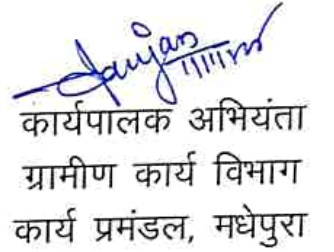 कार्यपालक अभियंता
ग्रामीण कार्य विभाग
कार्य प्रमंडल, मधेपुरा